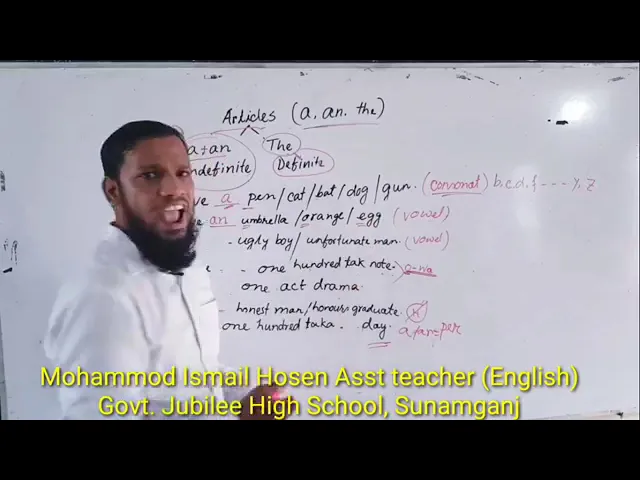 Articles (a, an. the)
a + an The
ndefinite Definite
ve a pen/cat/bat/dog/gun. (consonat) b.c.d.f --- y, z
an umbrella /orange/ egg (vowel)
- ugly boy/ unfortunate man. (vowel)
- one hundred tak note. o-wa
one act drama.
- honest man/honours graduate. h
one hundred taka. day. a/an=per
Mohammod Ismail Hosen Asst teacher (English)
Govt. Jubilee High School, Sunamganj